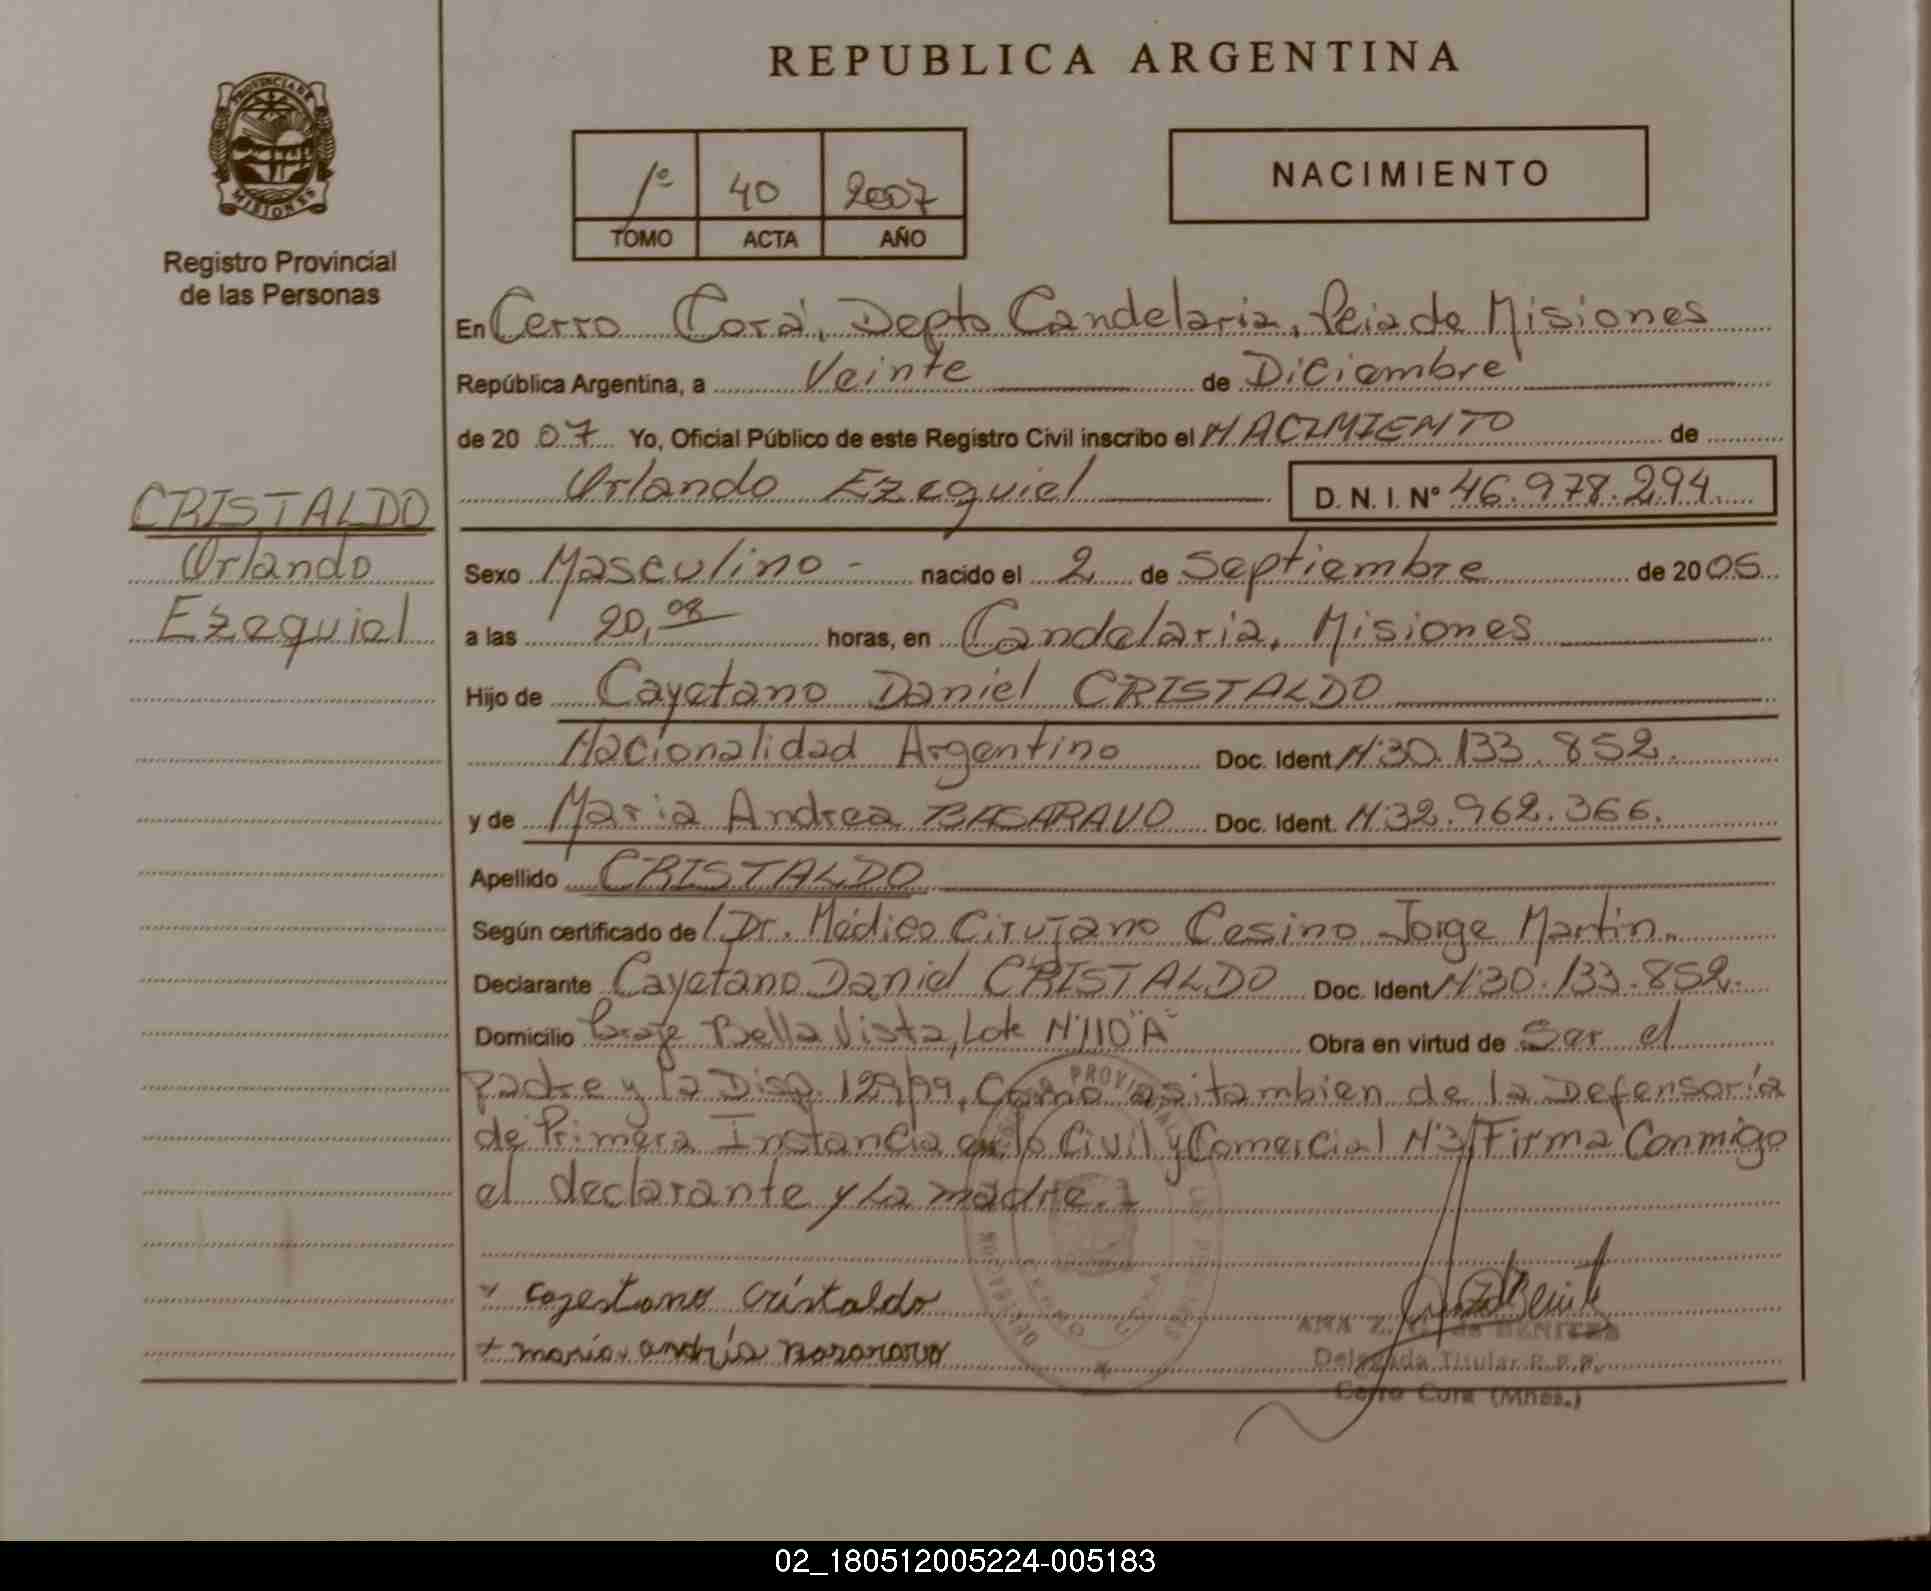 REPUBLICA ARGENTINA
PROVINCIA DE
MISIONES
Registro Provincial
de las Personas
1º 40 2007
TOMO ACTA AÑO
NACIMIENTO
En Cerro Corá, Depto Candelaria, Pcia de Misiones
República Argentina, a Veinte de Diciembre
de 20 07 Yo, Oficial Público de este Registro Civil inscribo el NACIMIENTO de
Orlando Ezequiel D. N. I. Nº 46.978.294
CRISTALDO
Orlando
Ezequiel
Sexo Masculino - nacido el 2 de Septiembre de 20 05
a las 20,08 horas, en Candelaria, Misiones
Hijo de Cayetano Daniel CRISTALDO
Nacionalidad Argentino Doc. Ident N:30.133.852.
y de Maria Andrea BASARAVO Doc. Ident. N:32.962.366.
Apellido CRISTALDO
Según certificado de Dr. Médico Cirujano Cesino Jorge Martin.
Declarante Cayetano Daniel CRISTALDO Doc. Ident N:30.133.852.
Domicilio Paraje Bella Vista, Lote Nº110"A" Obra en virtud de Ser el
padre y la Disp. 129/99, Como asi tambien de la Defensoría
de Primera Instancia en lo Civil y Comercial Nº3 Firma Conmigo
el declarante y La madre.
cayestano cristaldo
maria andria
ANA Z. de BENITES
Delegada Titular R.P.P.
Cerro Cora (Mnes.)
02_180512005224-005183